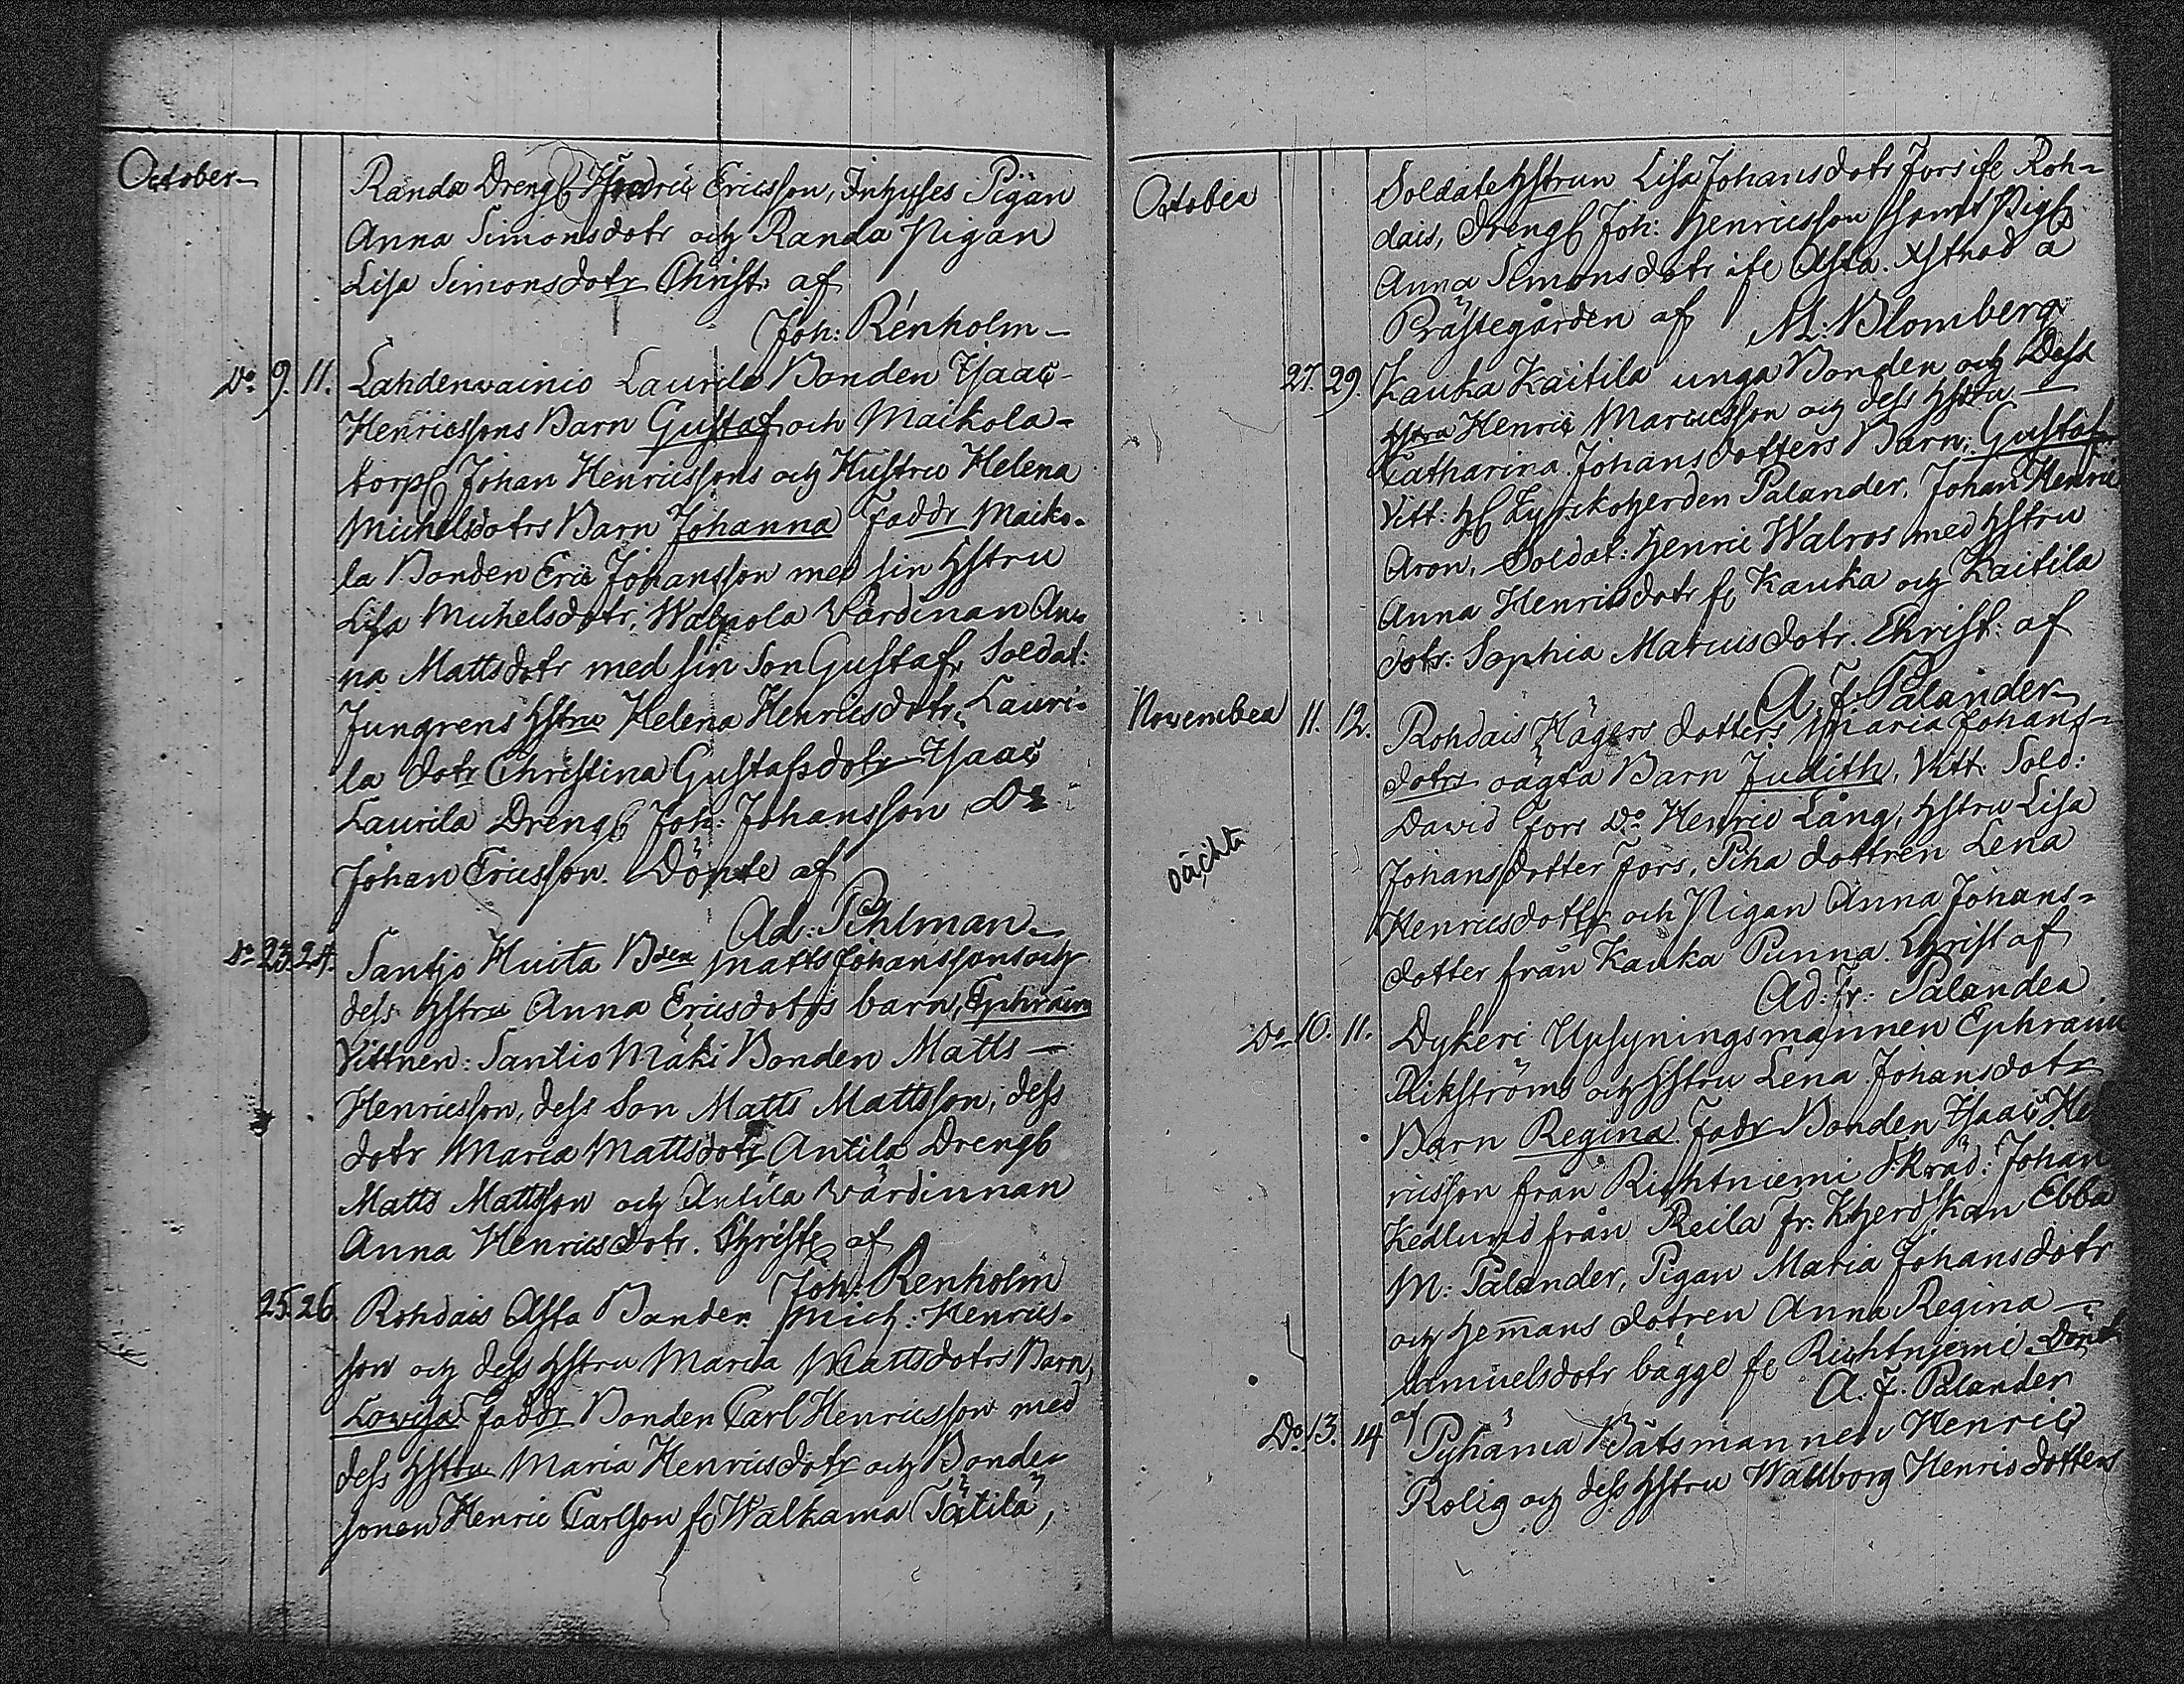 October
Randa Drengn Hendric Ericsson, Inhyses Pigan
Anna Simonsdotr och Randa Pigan
Lisa Simonsdotr Christ: af
Joh: Renholm
Do 9. 11. Lahdenvainio Laurila Bonden Isaac
Henricssons Barn Gustaf och Maikola-
torp Johan Henricssons och Hustru Helena
Michelsdotrs Barn Johanna Faddr Maiko-
la Bonden Eric Johansson med sin Hstru
Lisa Michelsdotr, Walpola Värdinan An-
na Mattsdotr med sin Son Gustaf, Soldat:
Jungrens Hstru Helena Henricsdotr, Lauri-
la dotr Christina Gustafsdotr Isaac
Laurila Dreng Joh: Johansson Do
Johan Ericsson. Döpte af
Ad: Pihlman
Do 23. 24. Santjo Huita Bden Matts Johanssons och
dess Hstru Anna Ericsdotrs barn, Ephraim
Vittnen: Santio Mäki Bonden Matts
Henricsson, dess Son Matts Mattsson, dess
dotr Maria Mattsdotr Antila Dreng
Matts Mattsson och Antila Värdinnan
Anna Henricsdotr. Christ af
Joh: Renholm
25. 26. Rohdais Asta Bonden Mich: Henrics-
son och dess Hstru Maria Mattsdotrs Barn,
Lovisa Faddr Bonden Carl Henricsson med
dess Hstru Maria Henricsdotr och Bonde-
sonen Henric Carlson fr Walkama Tätilä,
October
Soldatehstrun Lisa Johansdotr Fors ifr Roh-
dais, Dreng Joh: Henricsson samt Pig
Anna Simonsdotr ifr Asta. Xstnad å
Prästegården af M: Blomberg
27. 29. Kauka Kaitila unga Bonden och Dess
Hstra Henric Marcusson och dess Hstru
Catharina Johansdotters Barn: Gustaf
Vitt: H Kyrckoherden Palander, Johan Henric
Aron, Soldat: Henric Walros med Hstru
Anna Henricsdotr fr Kauka och Kaitila
dotr: Sophia Marcusdotr. Christ: af
A. F. Palander
November 11. 12. Rohdais Hägers dotters Maria Johans-
dotrs oägta Barn Judith, Vitt. Sold:
David Fors Do Henric Lång, Hstru Lisa
oächta
Johansdotter Fors, Piha dottren Lena
Henricsdottr och Pigan Anna Johans-
dotter från Kauka Punna. Christ af
Ad: Fr: Palander
Do 10. 11. Dykeri Upsyningsmannen Ephraim
Rikströms och Hstru Lena Johansdotr
Barn Regina Fadr Bonden Isaac He
ricsson från Richtniemi Skräd: Johan
Kedlund från Reila Fr: Kherdskan Ebba
M: Palander, Pigan Maria Johansdotr
och Hemans dotren Anna Regina
Samuelsdotr bägge fr Richtniemi Dönt
af A. F. Palander
Do 13. 14 Pyhäma Båtsmannen Henric
Rolig och dess Hstru Wallborg Henrics dotters